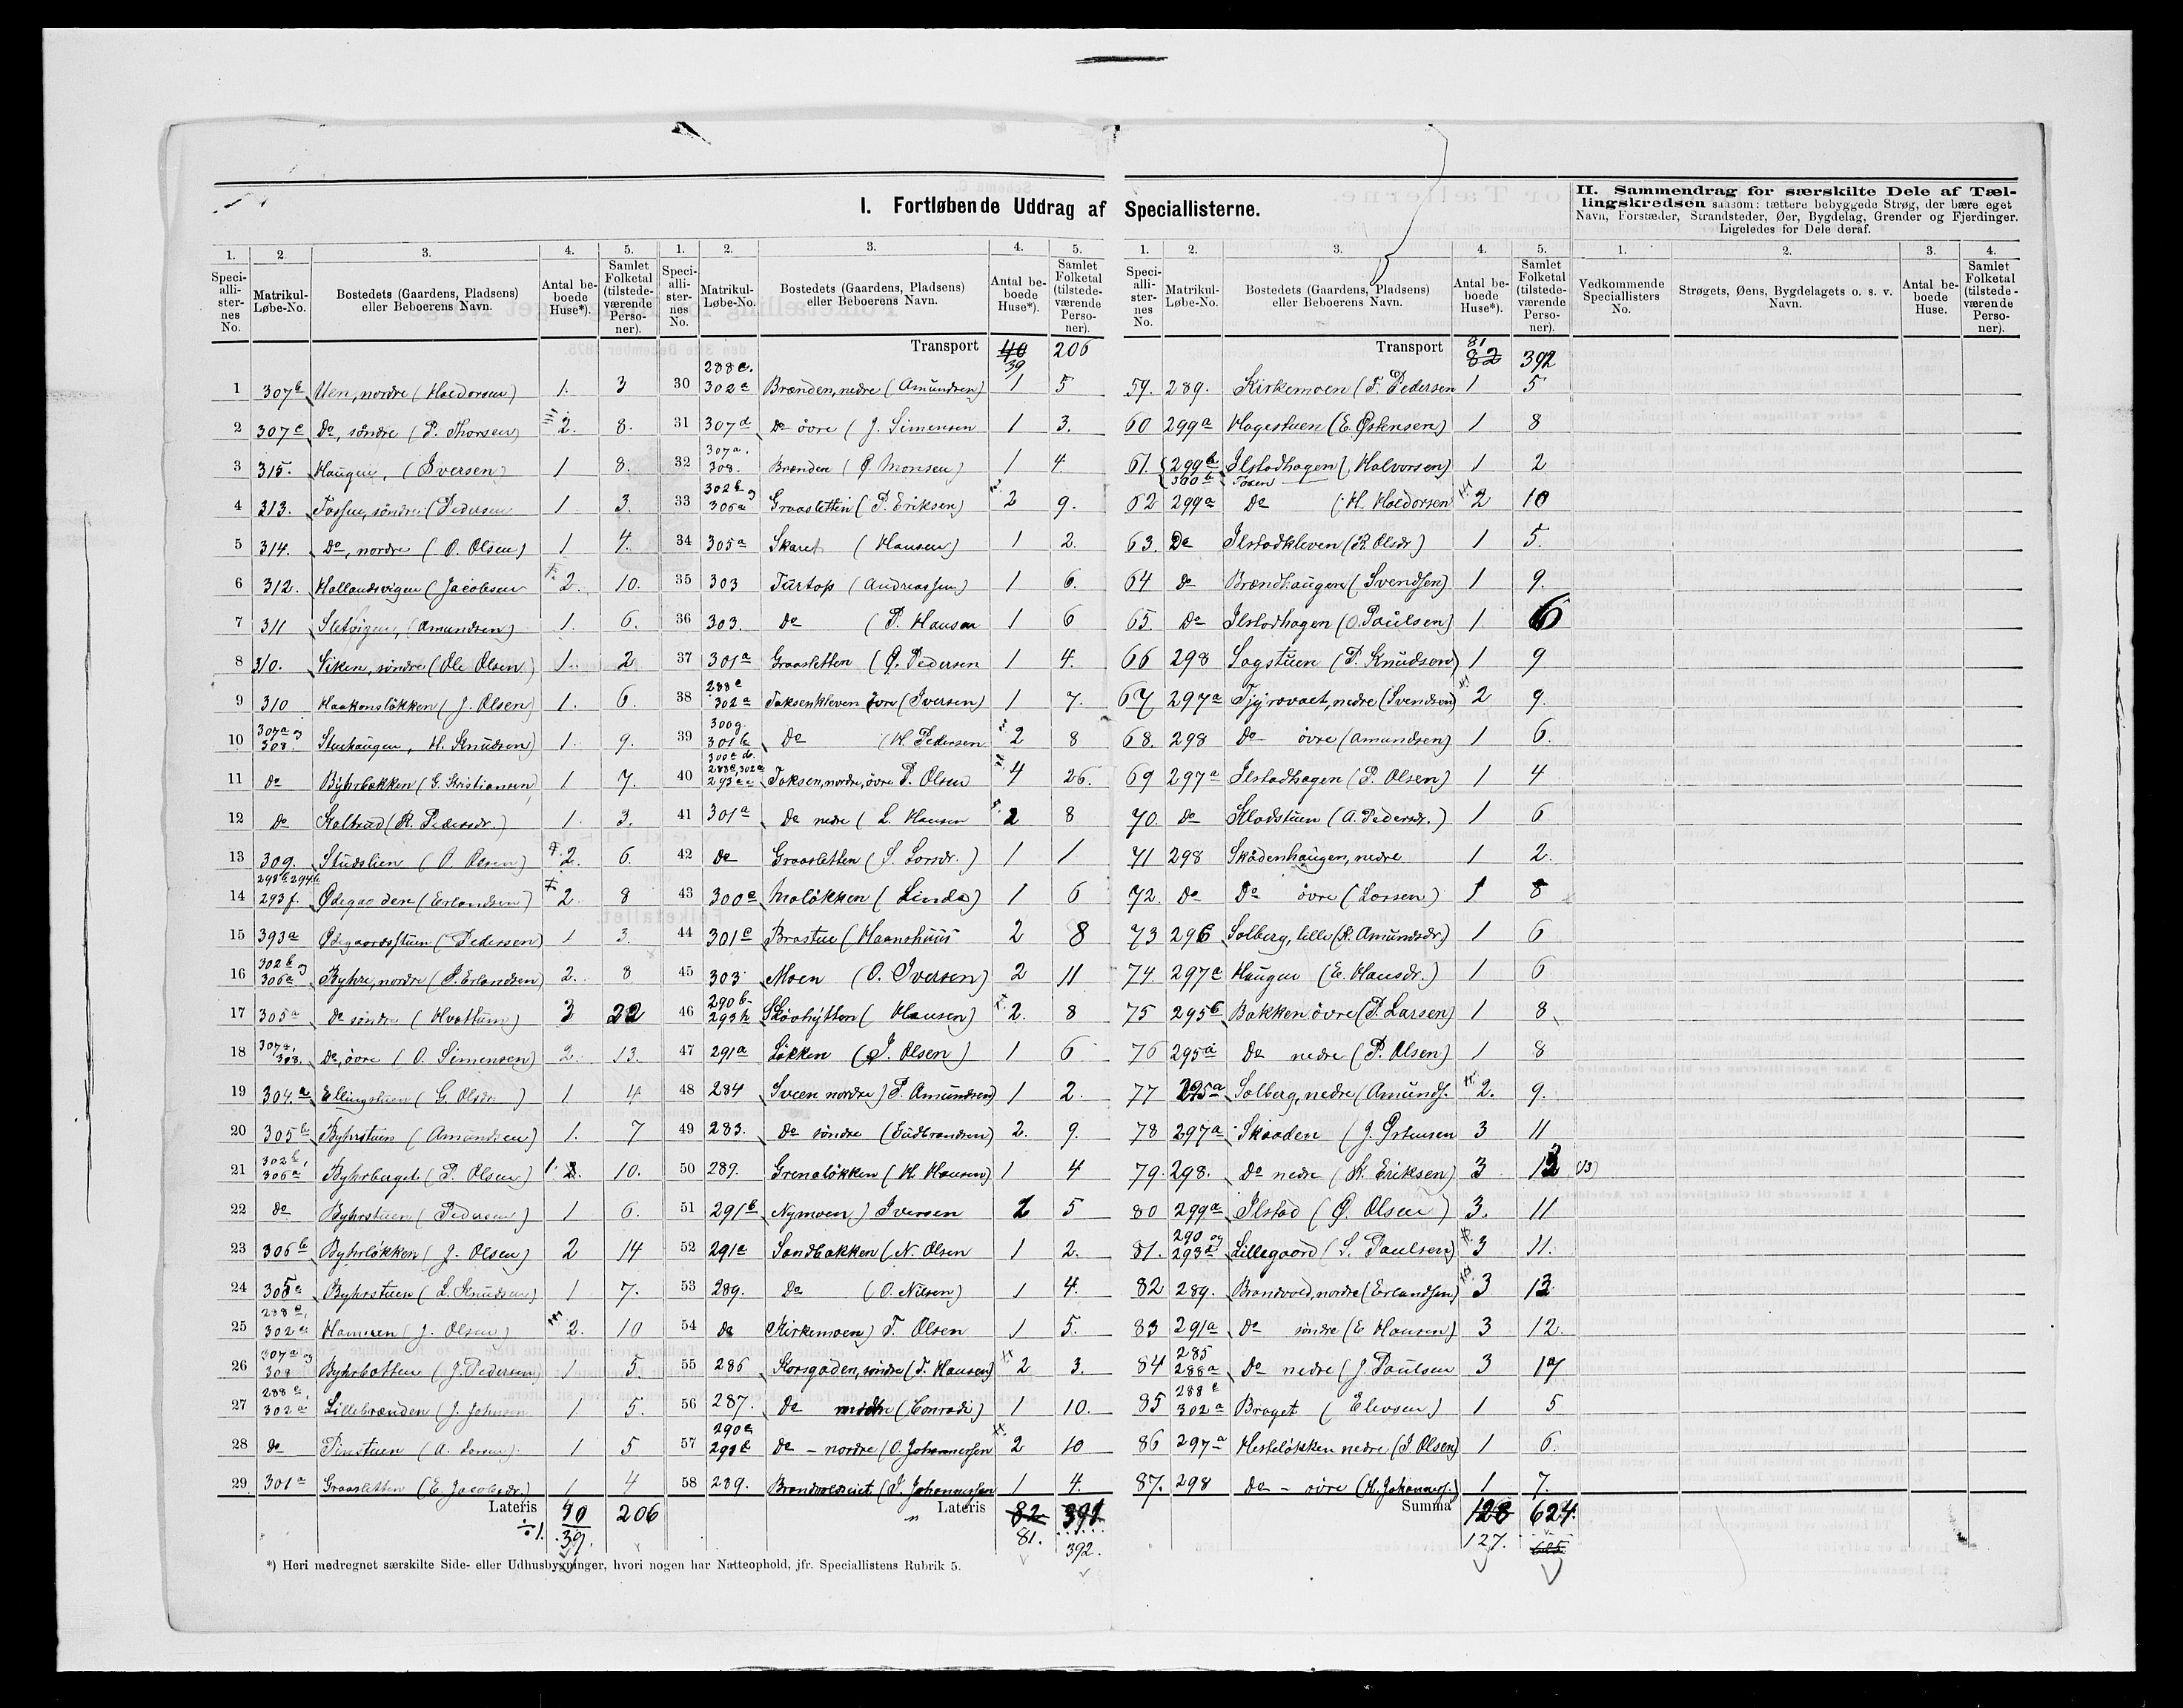 I. Fortløbende Uddrag af Speciallisterne.
II. Sammendrag for særskilte Dele af Tæl-
lingskredsen saasom: tættere bebyggede Strøg, der bære eget
Navn, Forstæder, Strandsteder, Øer, Bygdelag, Grender og Fjerdinger.
Ligeledes for Dele deraf.
1. 2. 3. 4. 5.
Speci-alli-ster-nes No. Matrikul-Løbe-No. Bostedets (Gaardens, Pladsens) eller Beboerens Navn. Antal be-boede Huse*). Samlet Folketal (tilstede-værende Perso-ner).
1 307b Uen, nordre (Haldorsen) 1. 3
2 307c Do, söndre (P. Thorsen) 2. 8.
3 315. Haugen, (Iversen) 1 8.
4 313. Fossen, söndre (Pedersen 1 3.
5 314. Do, nordre (O. Olsen) 1 4.
6 312. Hollandsvigen (Jacobsen 2. 10.
7 311 Sletvigen, (Amundsen) 1. 6.
8 310. Viken, söndre (Ole Olsen) 1. 2
9 310 Haakonslökken (J. Olsen) 1. 6.
10 307a og 308. Stuehaugen, H. Knudsen) 1. 9.
11 do Byhrbakken (G. Kristiansen) 1 7.
12 do Kalbrud (R. Pedersdr.) 1. 3.
13 309. Studslien (O. Olsen) 2. 6.
14 298b 294b 293f. Ødegaarden (Erlandsen) 2. 8
15 393a Ødegaardsstuen (Pedersen) 1 3.
16 302b og 306a Byhre, nordre (P. Erlandsen) 2. 8
17 305a do söndre (Hvattum) 3 22
18 307a, 308. Do, övre (O. Simensen) 2. 13.
19 304.a Ellingstuen (G. Olsdr. ) 1 4.
20 305b Byhrstuen (Amundsen) 1. 7
21 302b, 306a Byhrberget (P. Olsen) 1. 10.
22 do Byhrstuen (Pedersen) 1 6.
23 306b Byhrlökken (J. Olsen) 2 14
24 305a Byhrstuen (L. Knudsen) 1 7.
25 288c, 302a Hameren (J. Olsen) 2. 10
26 307a og 308 Byhrbotten (J. Pedersen) 1 5.
27 288c, 302a Lillebrænden (J. Johnsen 1. 5.
28 do Pinstuen (A. Larsen) 1 5
29 301a Graasletten (E. Jacobsdr.) 1 4
Lateris 40 206
÷1. 39.
1. 2. 3. 4. 5.
Speci-alli-ster-nes No. Matrikul-Løbe-No. Bostedets (Gaardens, Pladsens) eller Beboerens Navn. Antal be-boede Huse*). Samlet Folketal (tilstede-værende Perso-ner).
Transport 40 39 206
30 288c. 302a Brænden, nedre (Amundsen) 1 5
31 307d Do övre (J. Simensen 1 3.
32 307a, 308. Brænden (O. Monsen) 1 4.
33 302b og 306a Graasletten (P. Eriksen) 2 9.
34 305a Skaret (Hansen) 1 2.
35 303 Turtop (Andreassen) 1 6.
36 303. Do (P. Hansen 1 6
37 301a Graasletten (O. Pedersen 1 4.
38 288c 302a Toksenkleven övre (Iversen) 1 7.
39 300g. 301b Do (H. Pedersen 2 8
40 300a do. 288c, 302a 293a Toksen, nordre, övre P. Olsen 4 26.
41 301a do nedre (L. Hansen 2 8
42 do Graasletten (S. Larsdr.) 1 1
43 300a Molökken (Linda) 1 6
44 301c Brastue (Haanshuus 2 8
45 303. Moen (O. Iversen) 2 11
46 290b 293h Skövhytten (Hansen) 2. 8
47 291a Lökken (J. Olsen) 1 6
48 284 Sveen nordre) P. Amundsen) 1 2.
49 283. Do söndre (Gudbrandsen) 2. 9.
50 289. Grenalökken (H. Hansen) 1 4
51 291b Nymoen) Iversen 2 5
52 291c Sandbakken (N. Olsen 1 2.
53 289. Do (O. Nilsen) 1 4.
54 do Kirkemoen) T. Olsen 1 5.
55 286 Korsgaden, söndre (T. Hansen) 2 3.
56 287. Do midtre (Conradi) 1 10.
57 290a 291d do - nordre (O. Johannessen 2 10
58 289. Brandvoldeiet (J. Johannessen 1 4.
Lateris 82 391
81. 392.
1. 2. 3. 4. 5.
Speci-alli-ster-nes No. Matrikul-Løbe-No. Bostedets (Gaardens, Pladsens) eller Beboerens Navn. Antal be-boede Huse*). Samlet Folketal (tilstede-værende Perso-ner).
Transport 81 82 392
59. 289. Kirkemoen (T. Pedersen 1 5
60 299a Hagestuen (E. Østensen) 1 8
61. 299b 300b Ilstadhagen (Halvorsen) 1 2
62 299a Do (H. Haldorsen 2 10
63. Do Ilstadkleven (R. Olsdr) 1 5.
64 do Brændhaugen (Svendsen) 1 9.
65. Do Ilstadhagen (O. Paulsen) 1 6
66 298 Sagstuen (P. Knudsen) 1 9
67 297a Tjyrovaet, nedre (Svendsen) 2 9.
68. 298 Do övre (Amundsen) 1 6.
69 297a Ilstadhagen (P. Olsen) 1 4
70. do Kladstuen (A. Pedersdr.) 1 6
71 298 Skådenhaugen, nedre 1 2.
72. do Do övre (Larsen) 1 8
73 296 Solberg, lille (R. Amundsdr.) 1 6
74. 297c Haugen (E. Hansdr.) 1 6
75 295b Bakken övre (P. Larsen) 1 8
76 295a do nedre (P. Olsen) 1 8
77 295a Solberg, nedre (Amunds. 2. 9.
78 297a Skaaden (J. Østensen 3 11
79. 298. Do nedre (K. Eriksen) 3 13 (13)
80 299a Ilstad (O. Olsen) 3. 11
81. 290 og 293d Lillegaard (S. Paulsen) 3 11.
82 289. Brandvold, nordre (Erlandsen) 3 13
83 291a do söndre (E Hansen) 3 12.
84 285 288a Do nedre (J. Paulsen 3 17
85 288c 302a Braget (Elevsen) 1 5
86 297a Hestelökken nedre (J Olsen) 1 6.
87. 298 do - övre (H. Johanness.) 1 7.
Summa 128 624.
127. 625
1. 2. 3. 4.
Vedkommende Speciallisters No. Strøgets, Øens, Bygdelagets o. s. v. Navn. Antal be-boede Huse. Samlet Folketal (tilstede-værende Perso-ner).
*) Heri medregnet særskilte Side- eller Udhusbygninger, hvori nogen har Natteophold, jfr. Speciallistens Rubrik 5.